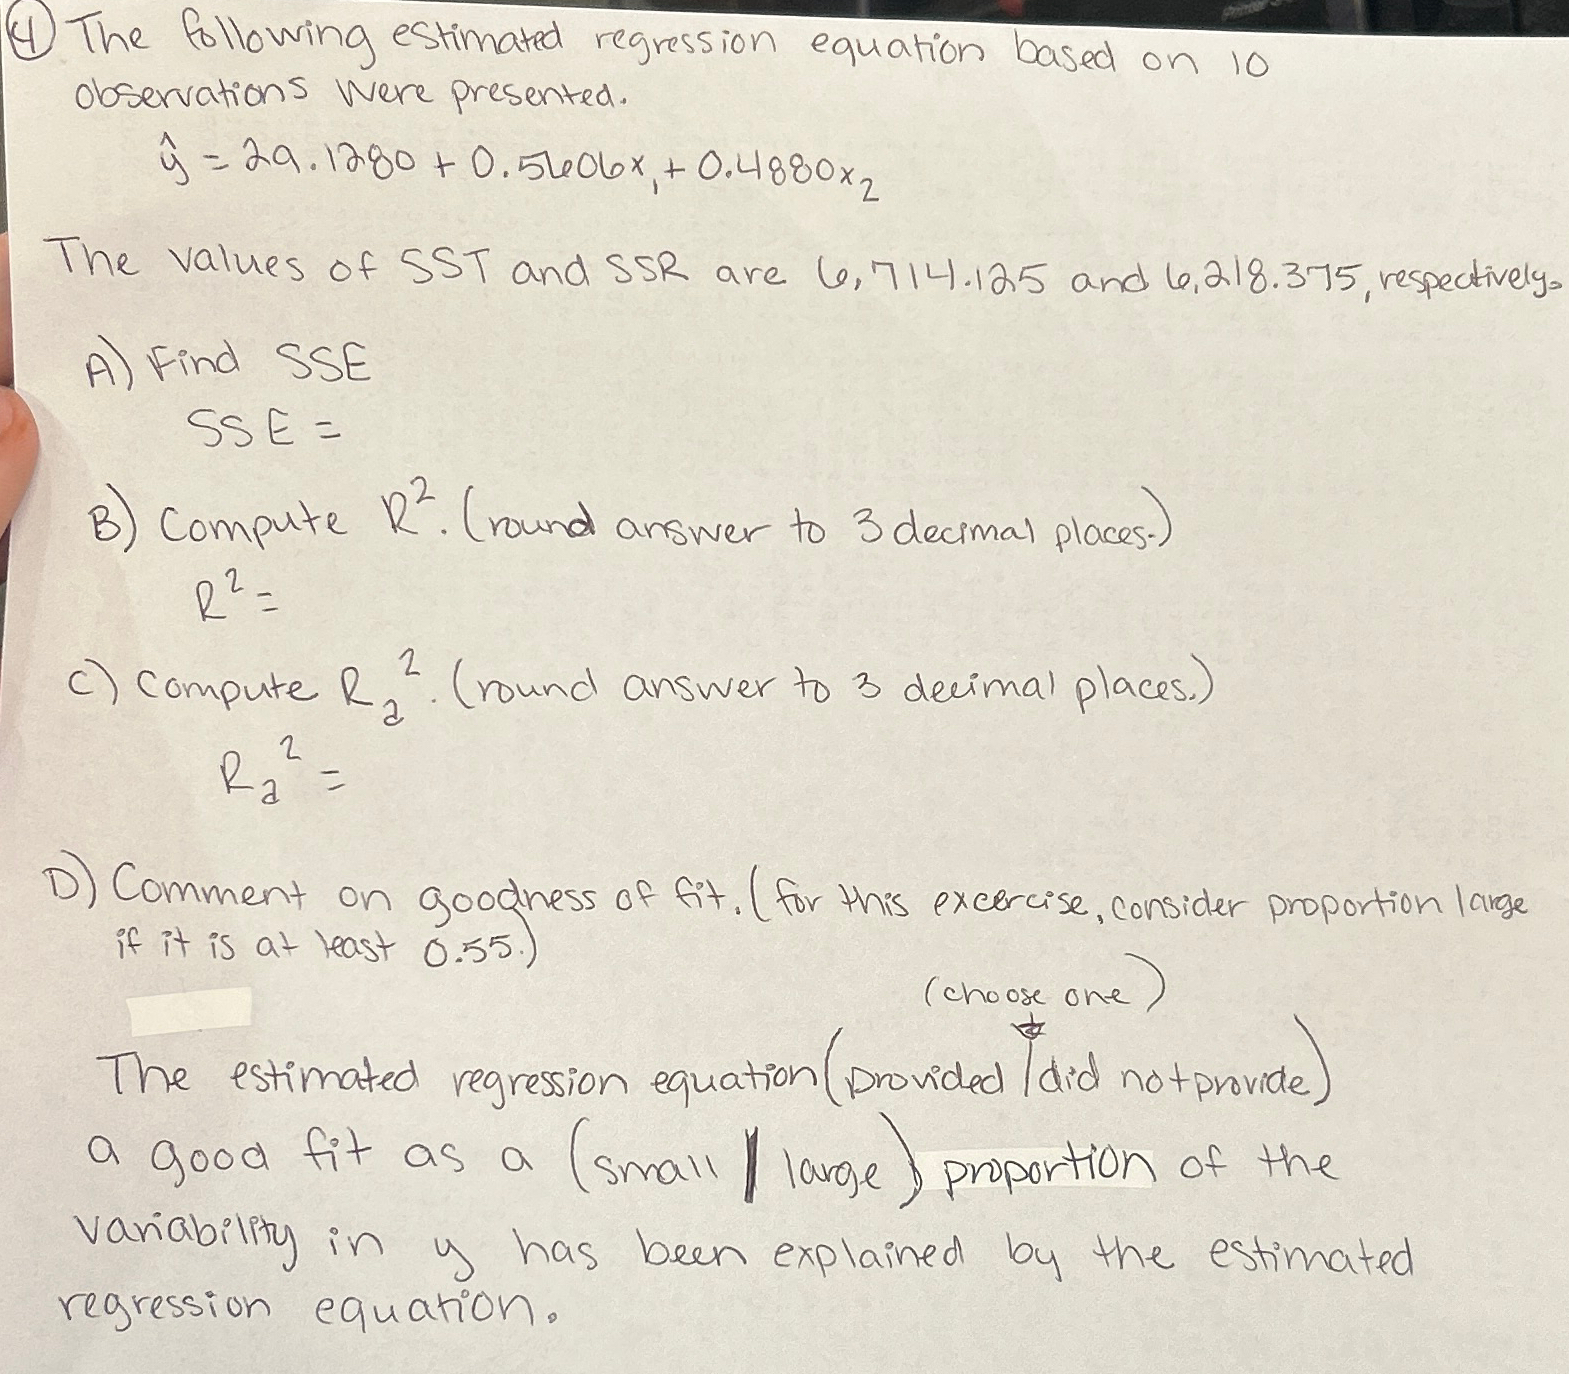 ④ The following estimated regression equation based on 10
observations were presented.
ŷ = 29.1280 + 0.5606x₁ + 0.4880x₂
The values of SST and SSR are 6,714.125 and 6,218.375, respectively.
A) Find SSE
SSE =
B) Compute R². (round answer to 3 decimal places.)
R² =
C) Compute Rₐ². (round answer to 3 decimal places.)
Rₐ² =
D) Comment on goodness of fit. (for this excercise, consider proportion large
if it is at least 0.55.)
(choose one)
The estimated regression equation (provided / did not provide)
a good fit as a (small | large) proportion of the
variability in y has been explained by the estimated
regression equation.